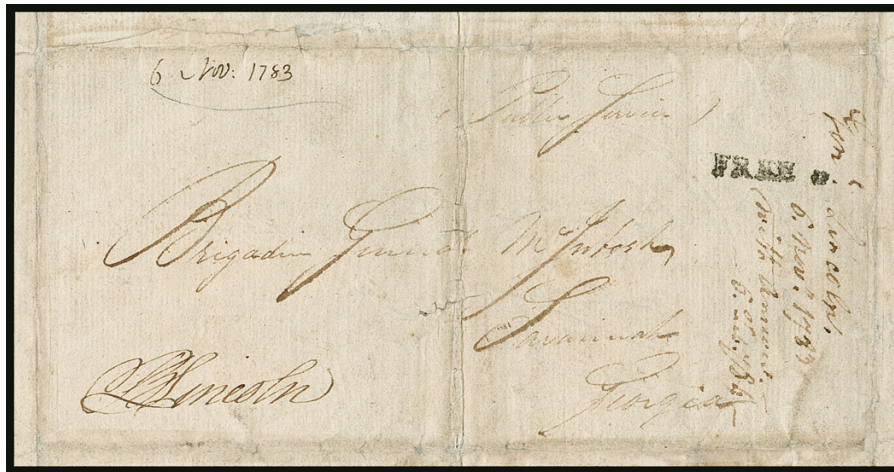 6 Nov: 1783
(Public Service)
FREE
Brigadier General McIntosh
Savannah
Georgia
BLincoln
Lincoln,
6 Nov. 1783
with